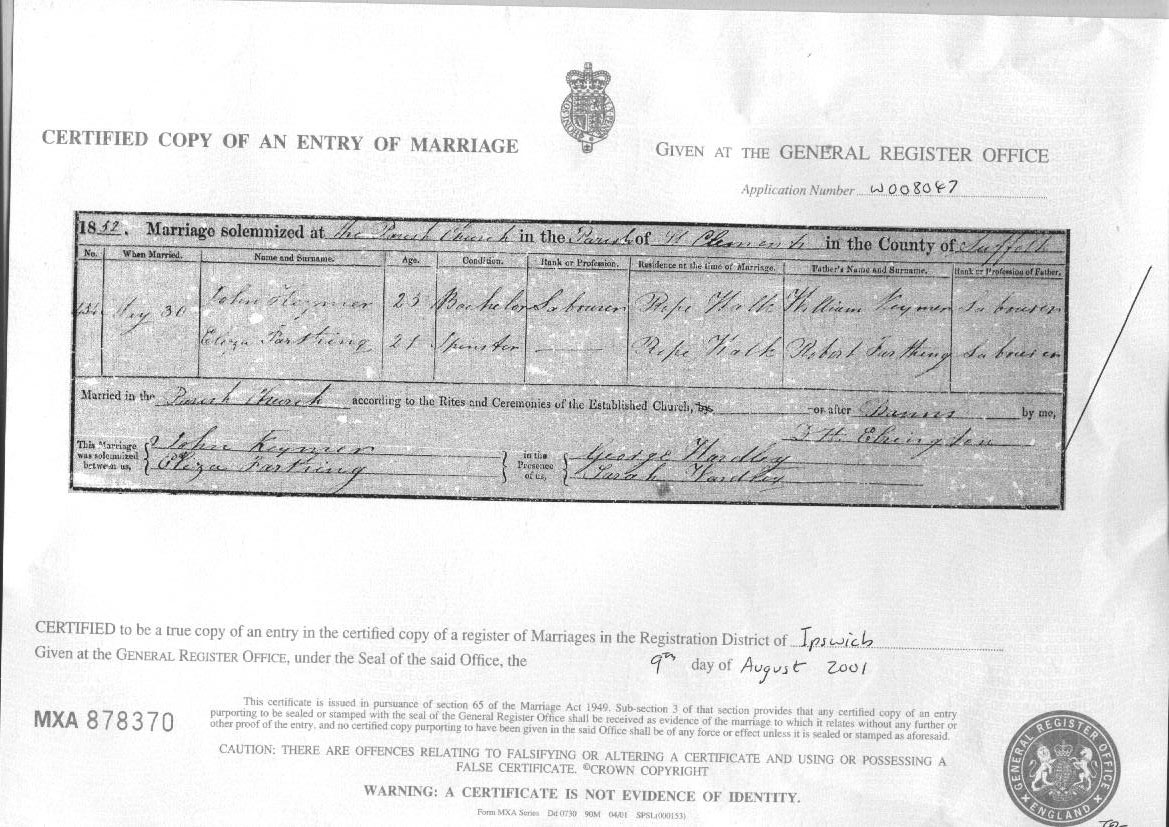 CERTIFIED COPY OF AN ENTRY OF MARRIAGE
GIVEN AT THE GENERAL REGISTER OFFICE
Application Number W008047
1852. Marriage solemnized at the Parish Church in the Parish of St Clements in the County of Suffolk
No. When Married. Name and Surname. Age. Condition. Rank or Profession. Residence at the time of Marriage. Father's Name and Surname. Rank or Profession of Father.
30 John Keymer 23 Bachelor Labourer Rope Walk William Keymer Labourer
Eliza Farthing 21 Spinster Rope Walk Robert Farthing Labourer
Married in the Parish Church according to the Rites and Ceremonies of the Established Church, by or after Banns by me,
This Marriage was solemnized between us, John Keymer
Eliza Farthing
in the Presence of us, George Wardley
Sarah Wardley
CERTIFIED to be a true copy of an entry in the certified copy of a register of Marriages in the Registration District of Ipswich
Given at the GENERAL REGISTER OFFICE, under the Seal of the said Office, the 9th day of August 2001
MXA 878370
This certificate is issued in pursuance of section 65 of the Marriage Act 1949. Sub-section 3 of that section provides that any certified copy of an entry
purporting to be sealed or stamped with the seal of the General Register Office shall be received as evidence of the marriage to which it relates without any further or
other proof of the entry, and no certified copy purporting to have been given in the said Office shall be of any force or effect unless it is sealed or stamped as aforesaid.
CAUTION: THERE ARE OFFENCES RELATING TO FALSIFYING OR ALTERING A CERTIFICATE AND USING OR POSSESSING A
FALSE CERTIFICATE. ©CROWN COPYRIGHT
WARNING: A CERTIFICATE IS NOT EVIDENCE OF IDENTITY.
Form MXA Series Dd 0730 90M 04/01 SPSL(000153)
GENERAL REGISTER OFFICE
ENGLAND